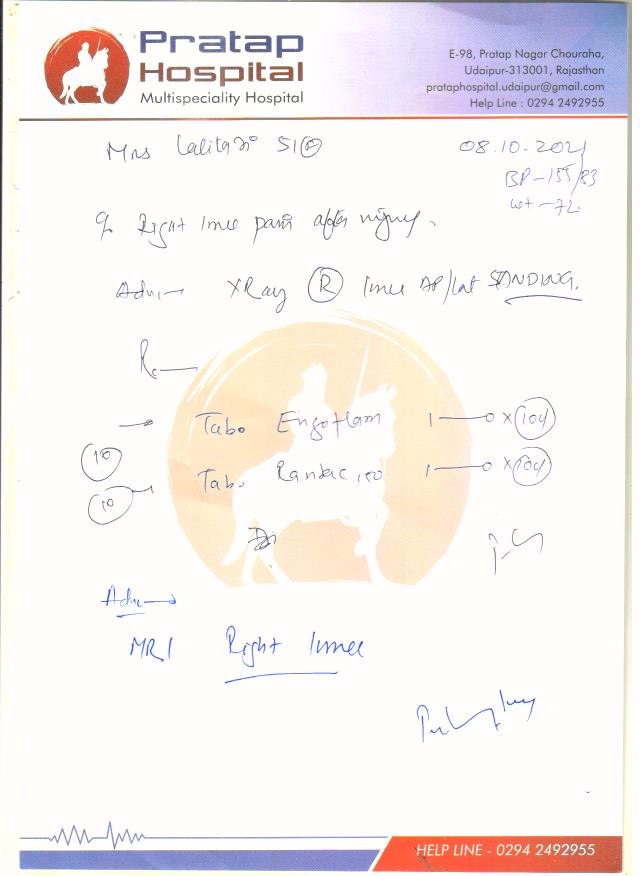 Pratap
Hospital
Multispeciality Hospital
E-98, Pratap Nagar Chouraha,
Udaipur-313001, Rajasthan
prataphospital.udaipur@gmail.com
Help Line : 0294 2492955
Mrs Lalita 51
08.10.2021
BP-155/83
wt-72
Right knee pain after injury.
Adv- XRay R knee AP/Lat STANDING.
R
Tab. Enzoflam 1 — 0 x 10d
10
Tab. Rantac 150 1 — 0 x 10d
10
Adv
MRI Right knee
HELP LINE - 0294 2492955